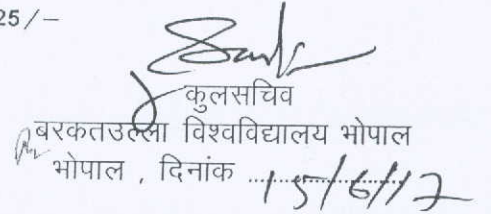 25/-
कुलसचिव
बरकतउल्ला विश्वविद्यालय भोपाल
भोपाल , दिनांक ..15/6/17